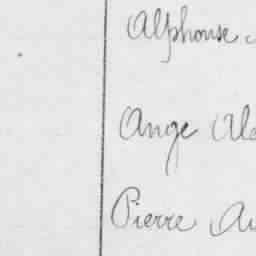 Alphonse
Ange Ale
Pierre Au